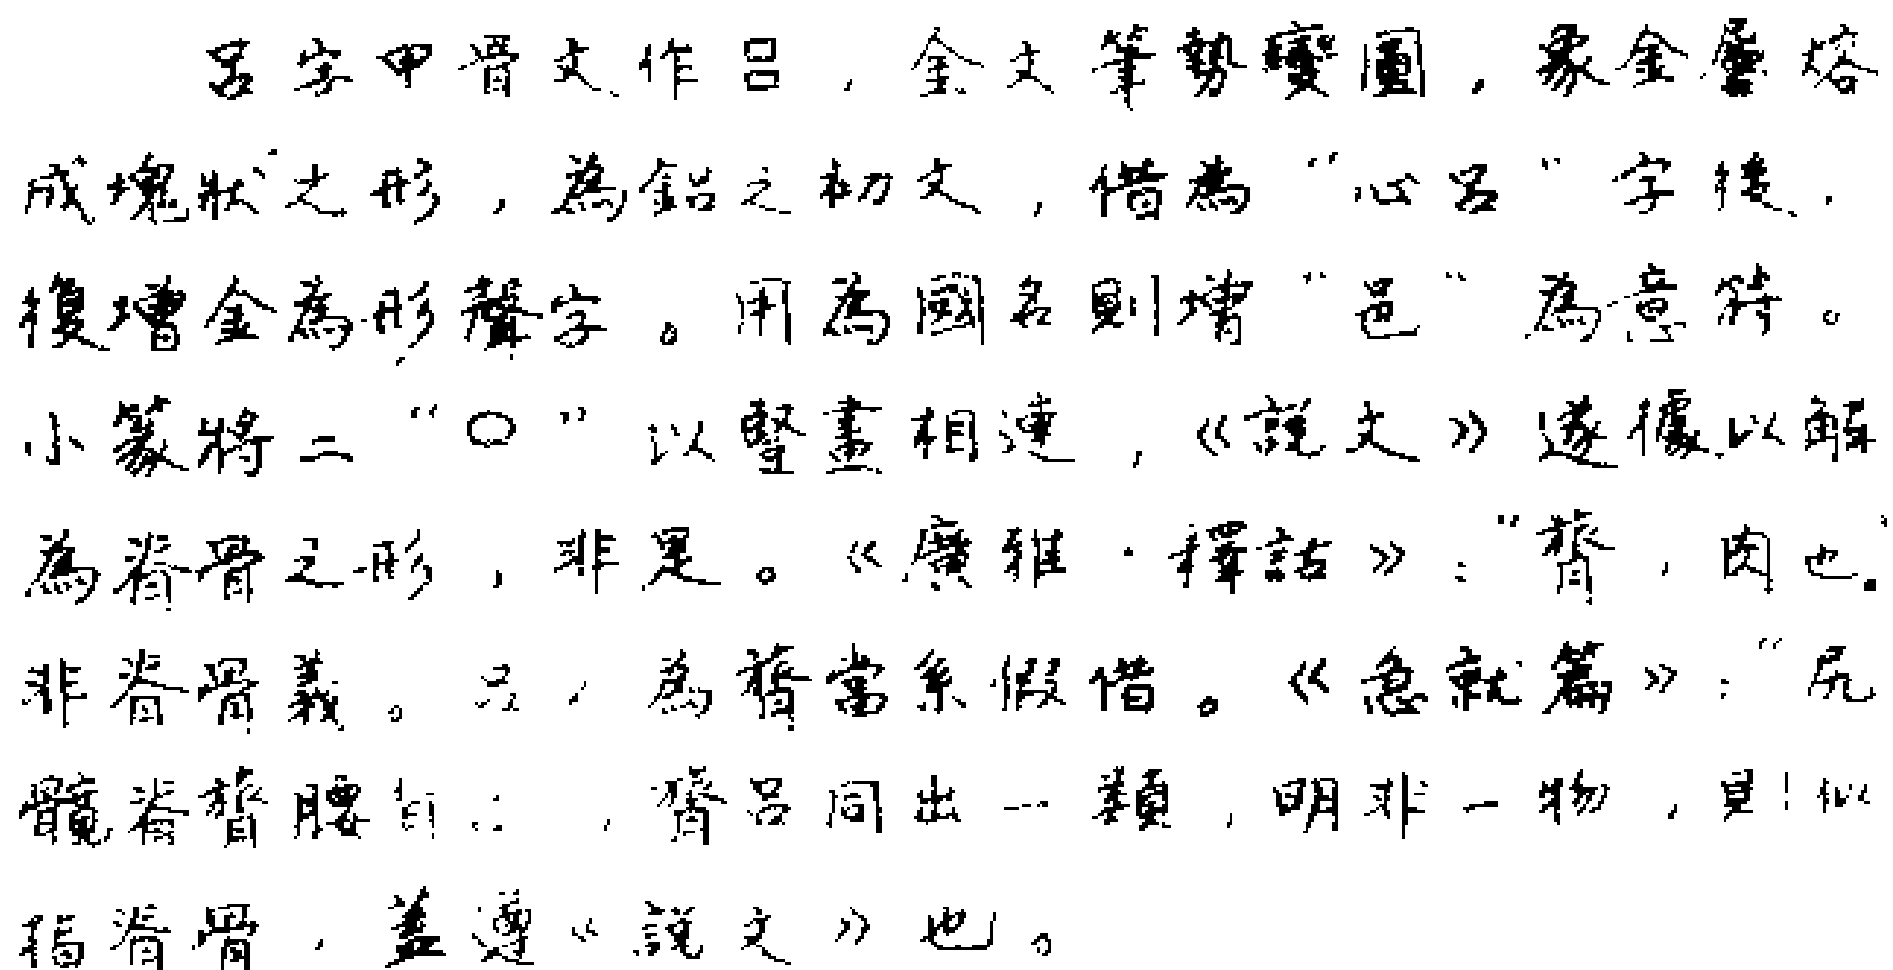 呂字甲骨文作吕，金文筆勢變圓，象金屬熔
成塊狀之形，為鋁之初文，借為“心呂”字後，
復增金為形聲字。用為國名則增“邑”為意符。
小篆將二“〇”以豎畫相連，《說文》遂據以解
為脊骨之形，非是。《廣雅·釋詁》：“膂，肉也。”
非脊骨義。呂，為膂當系假借。《急就篇》：“尻
髖脊膂腰背呂”，膂呂同出一類，明非一物，則以
指脊骨，蓋遵《說文》也。